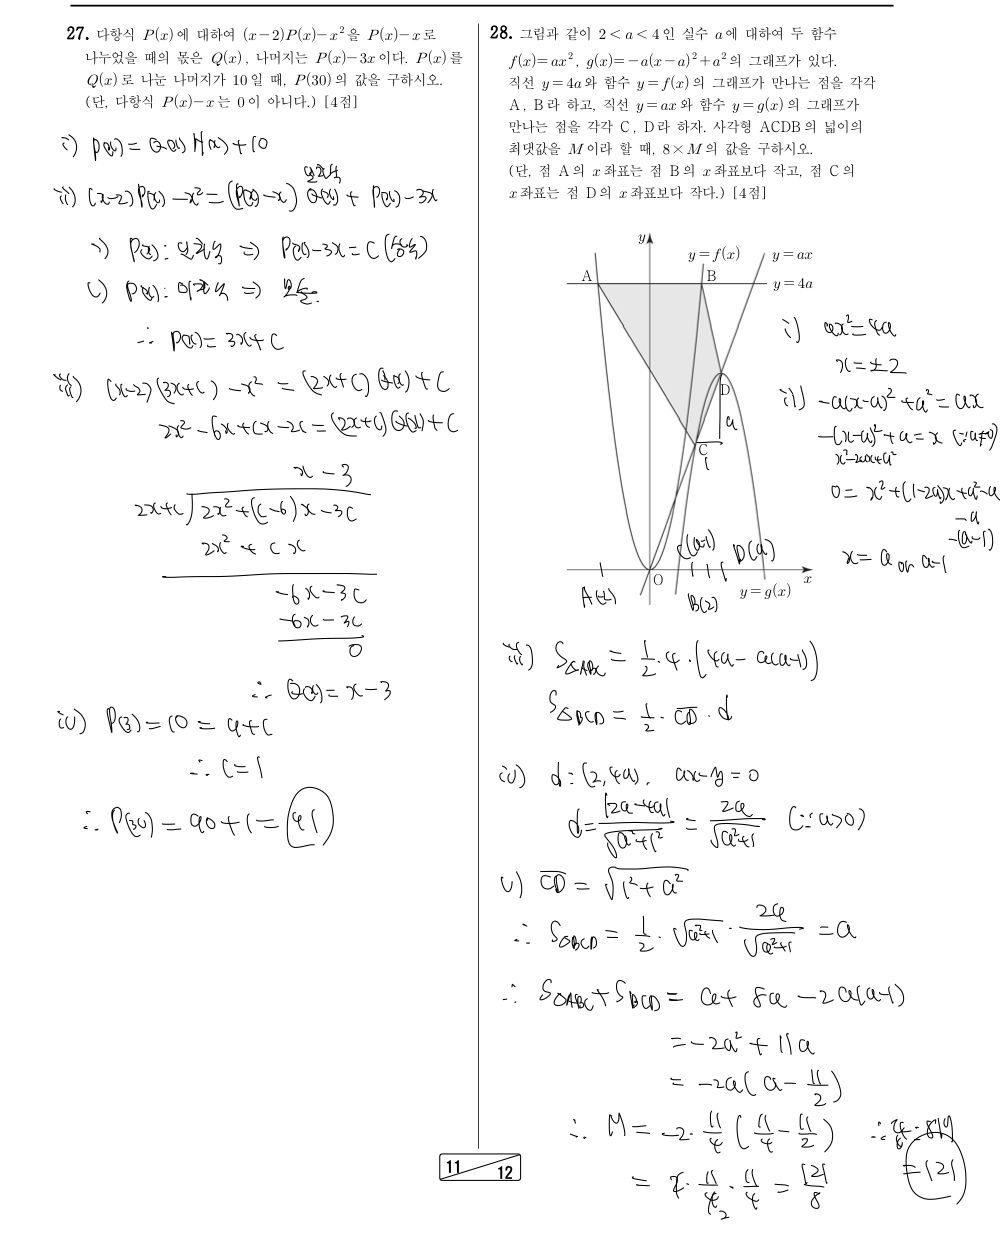 27. 다항식 P(x)에 대하여 (x-2)P(x)-x²을 P(x)-x로
나누었을 때의 몫은 Q(x), 나머지는 P(x)-3x이다. P(x)를
Q(x)로 나눈 나머지가 10일 때, P(30)의 값을 구하시오.
(단, 다항식 P(x)-x는 0이 아니다.) [4점]
i) P(x) = Q(x) N(x) + 10
일차식
ii) (x-2)P(x) - x² = (P(x)-x) Q(x) + P(x)-3x
P(x) : 일차식 ⇒ P(x)-3x = C (상수)
P(x) : 이차식 ⇒ 모순.
∴ P(x) = 3x+C
iii) (x-2)(3x+C) - x² = (2x+C) Q(x) + C
2x² - 6x + Cx - 2C = (2x+C) Q(x) + C
x - 3
2x+C 2x² + (C-6)x - 3C
2x² + Cx
-6x - 3C
-6x - 3C
0
∴ Q(x) = x-3
iv) P(3) = 10 = 9+C
∴ C = 1
∴ P(30) = 90+1 = 91
28. 그림과 같이 2<a<4인 실수 a에 대하여 두 함수
f(x)=ax², g(x)=-a(x-a)²+a²의 그래프가 있다.
직선 y=4a와 함수 y=f(x)의 그래프가 만나는 점을 각각
A, B라 하고, 직선 y=ax와 함수 y=g(x)의 그래프가
만나는 점을 각각 C, D라 하자. 사각형 ACDB의 넓이의
최댓값을 M이라 할 때, 8×M의 값을 구하시오.
(단, 점 A의 x좌표는 점 B의 x좌표보다 작고, 점 C의
x좌표는 점 D의 x좌표보다 작다.) [4점]
y
y=f(x) y=ax
A B y=4a
D
a
C
1
C(a-1) D(a)
O x
A(-2) B(2) y=g(x)
i) ax² = 4a
x = ±2
ii) -a(x-a)² + a² = ax
-(x-a)² + a = x (∵ a≠0)
x²-2ax+a²
0 = x² + (1-2a)x + a²-a
-a
-(a-1)
x = a or a-1
iii) S△ABC = 1/2 · 4 · (4a - a(a-1))
S△BCD = 1/2 · CD · d
iv) d : (2, 4a), ax-y = 0
d = |2a-4a| / √(a²+1²) = 2a / √(a²+1) (∵ a>0)
v) CD = √(1²+a²)
∴ S△BCD = 1/2 · √(a²+1) · 2a / √(a²+1) = a
∴ S△ABC + S△BCD = a + 8a - 2a(a-1)
= -2a² + 11a
= -2a(a - 11/2)
∴ M = -2 · 11/4 (11/4 - 11/2) ∴ 8M
= 2 · 11/4 · 11/4 = 121/8 = 121
2
11 12